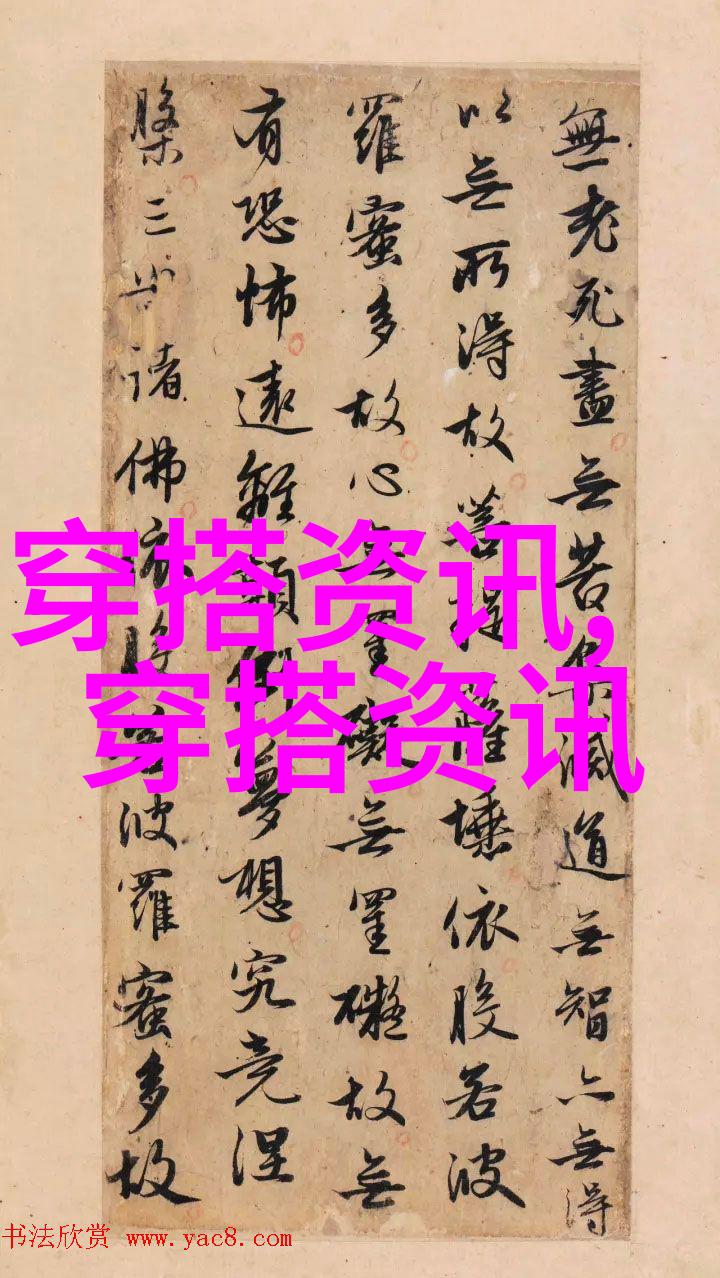 無老死盡无苦集滅道无智亦无得
以无所得故菩提薩埵依般若波
羅蜜多故心无罣礙无罣礙故无
有恐怖遠離顛倒夢想究竟涅
槃三世諸佛依般若波羅蜜多故
穿搭资讯,
穿搭资讯
书法欣赏 www.yac8.com